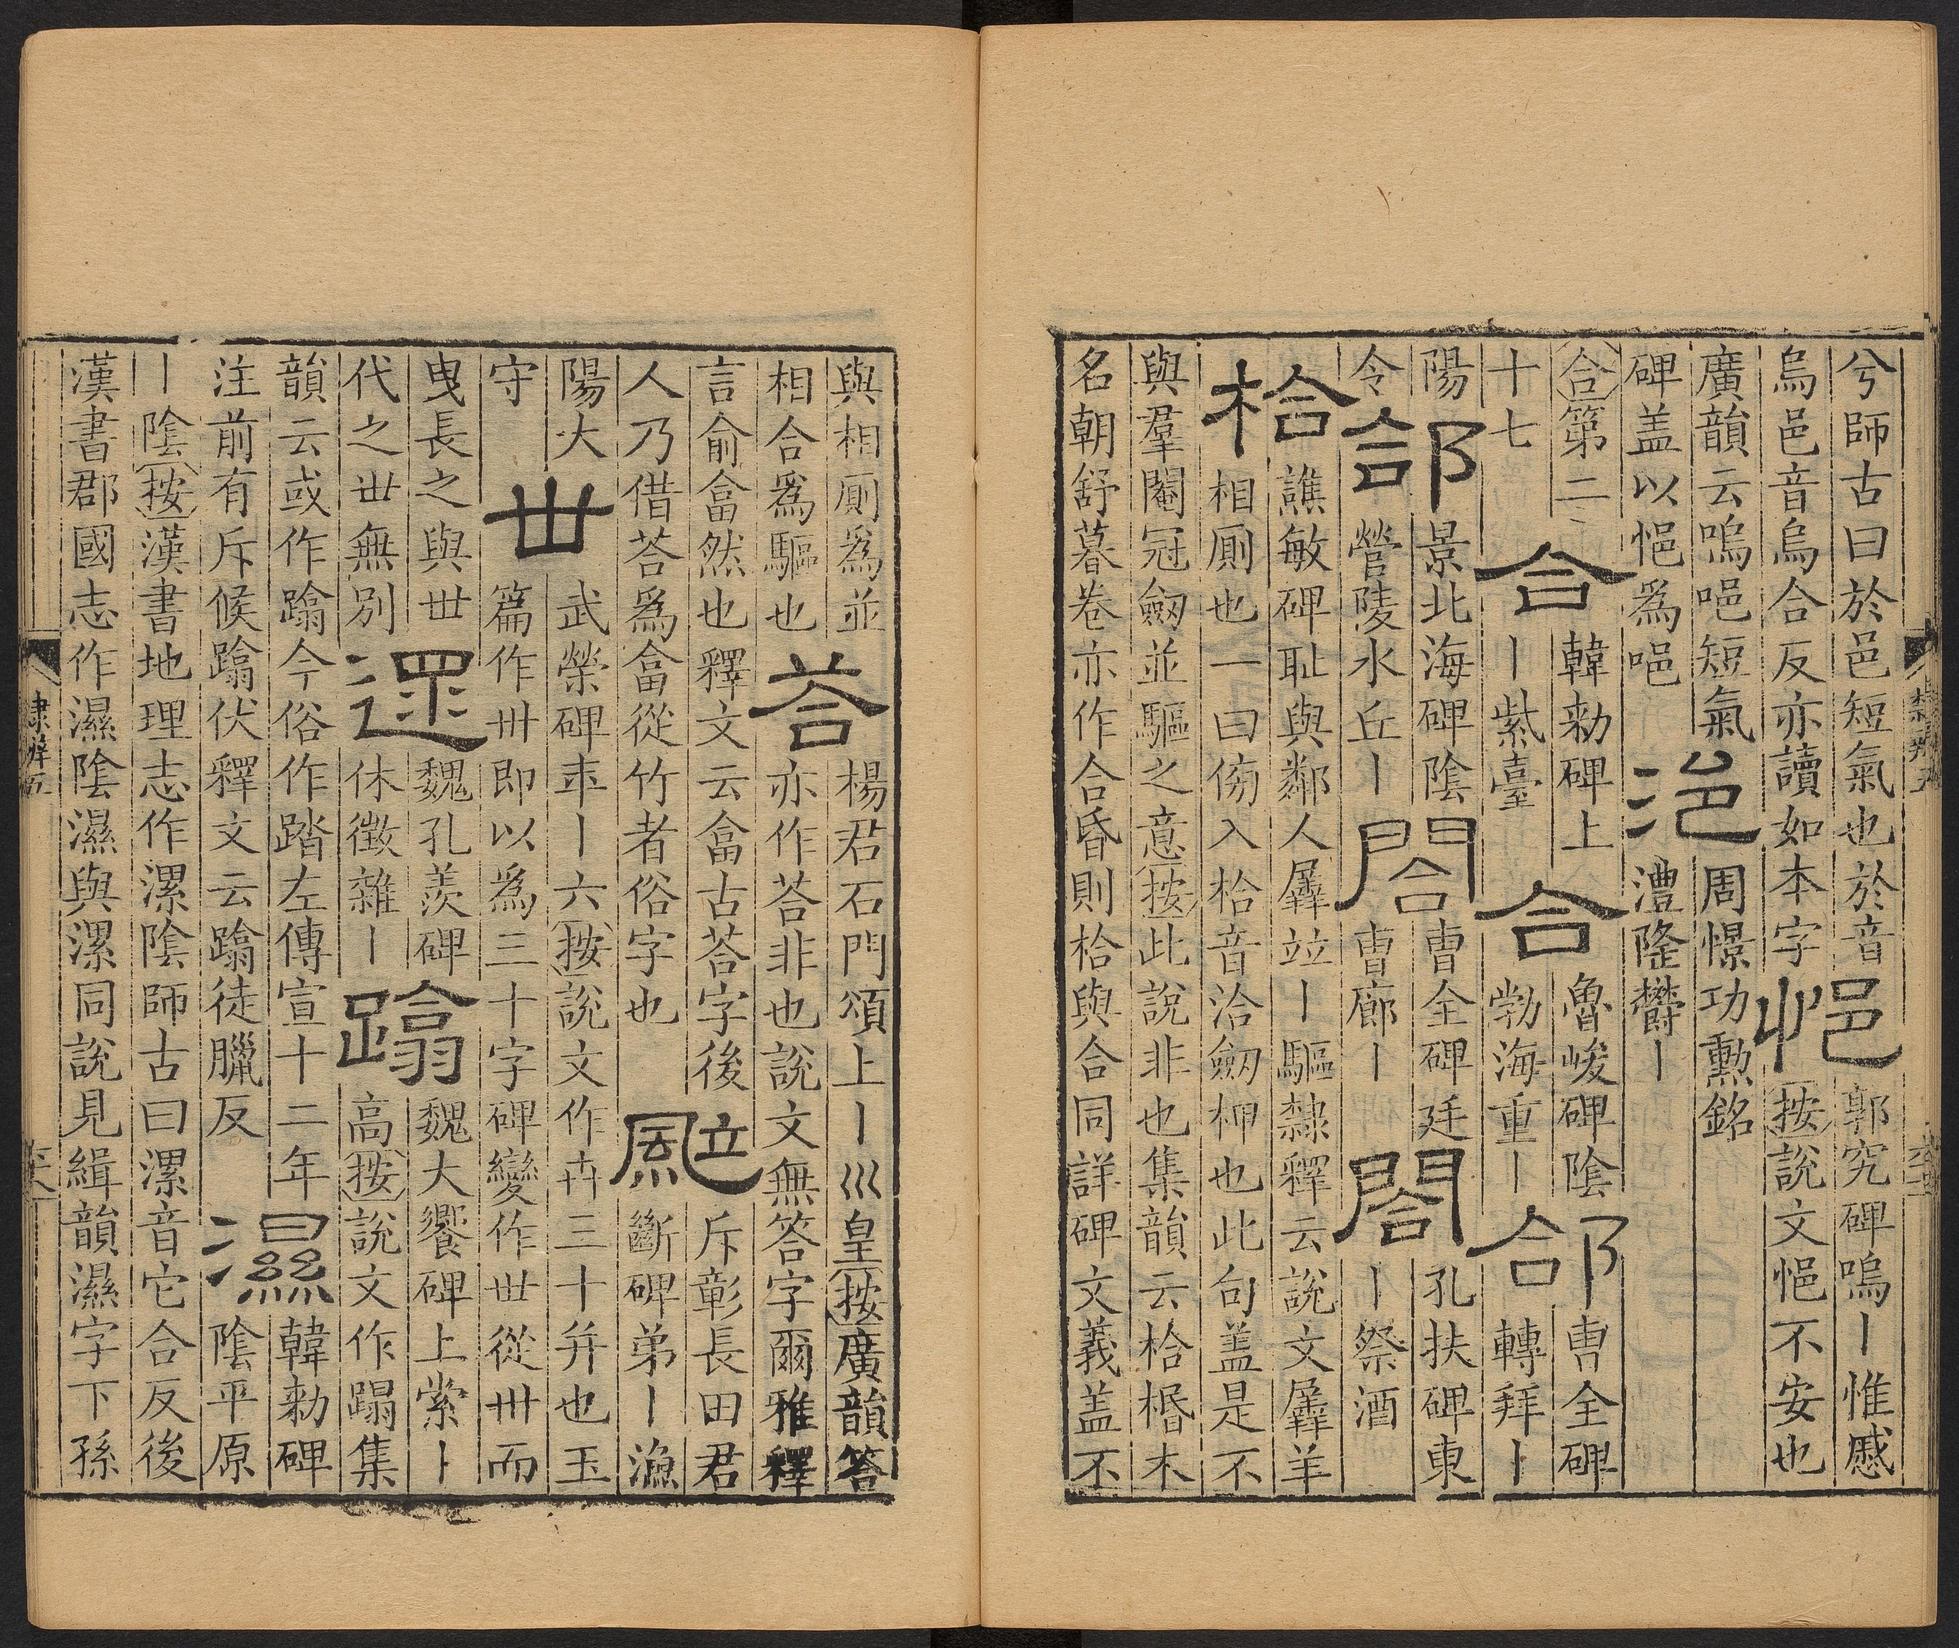 兮師古曰於邑短氣也於音
烏邑音烏合反亦讀如本字
悒
郭究碑嗚丨惟慼
按說文悒不安也
廣韻云嗚唈短氣
碑盖以悒爲唈
浥
周憬功勲銘
澧隆欝丨
合第二
十七
合
韓勑碑上
丨紫臺
合
魯峻碑陰
勃海重丨
郃
曹全碑
轉拜丨
陽
令
郃
景北海碑陰
營陵水丘丨
閤
曹全碑廷
曹廊丨
閤
孔扶碑東
丨祭酒
㭘
譙敏碑耻與鄰人羼竝丨驅隸釋云說文羼羊
相厠也一曰傍入㭘音洽劒柙也此句盖是不
與羣閹冠劒並驅之意按此說非也集韻云㭘棔木
名朝舒暮卷亦作合昏則㭘與合同詳碑文義盖不
與相厠爲並
相合爲驅也
荅
楊君石門頌上丨巛皇按廣韻答
亦作荅非也說文無答字爾雅釋
言俞畣然也釋文云畣古荅字後
人乃借荅爲畣從竹者俗字也
颯
斥彰長田君
斷碑弟丨漁
陽大
守
卋
武榮碑秊丨六按說文作卉三十并也玉
篇作卅即以爲三十字碑變作丗從卅而
曳長之與世
代之丗無別
遝
魏孔羨碑
休徵雜丨
蹋
魏大饗碑上索丨
高按說文作蹋集
韻云或作蹹今俗作踏左傳宣十二年
注前有斥候蹹伏釋文云蹹徒臘反
濕
韓勑碑
陰平原
丨陰按漢書地理志作漯陰師古曰漯音它合反後
漢書郡國志作濕陰濕與漯同說見緝韻濕字下孫
隸辨五